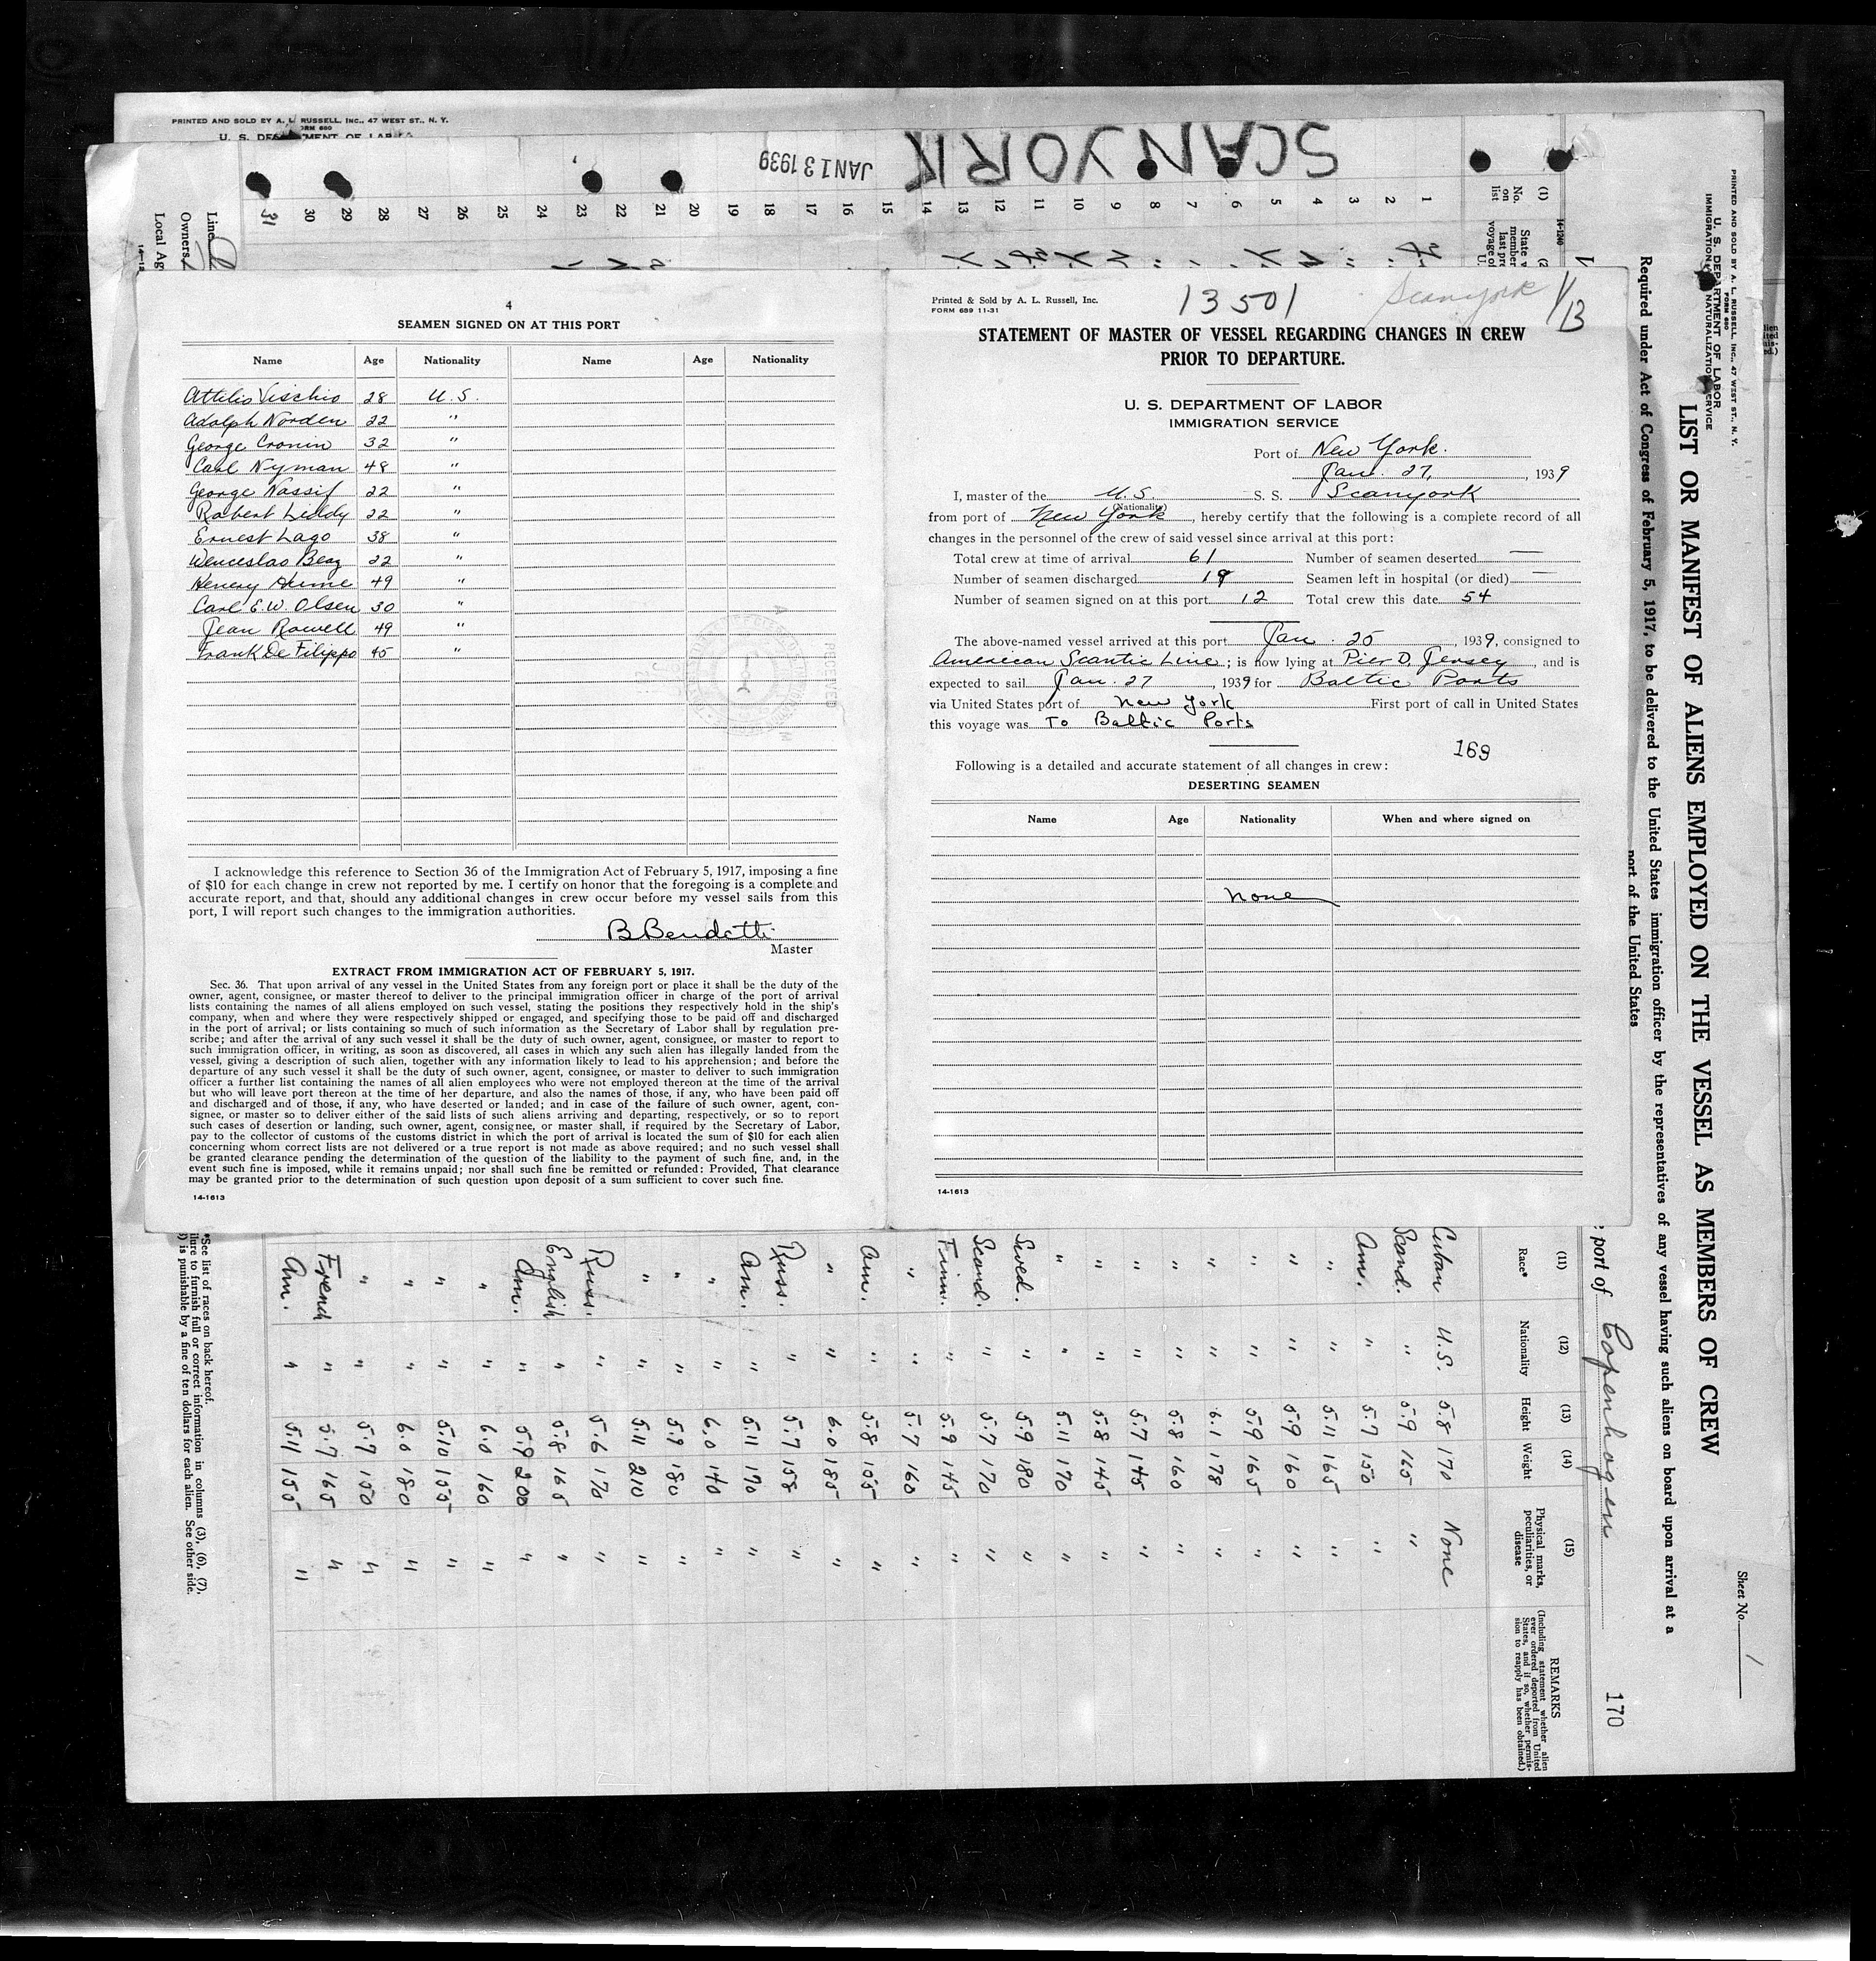 PRINTED AND SOLD BY A. L. RUSSELL, INC., 47 WEST ST., N. Y.
SCANYORK
JAN 13 1939
31 30 29 28 27 26 25 24 23 22 21 20 19 18 17 16 15 14 13 12 11 10 9 8 7 6 5 4 3 2 1
(1)
No. on list
14-1240
Line
Owners
Local Ag
4
SEAMEN SIGNED ON AT THIS PORT
Name Age Nationality Name Age Nationality
Attilio Vischio 28 U.S.
Adolph Norden 22 "
George Cronin 32 "
Carl Nyman 48 "
George Nassif 22 "
Robert Liddy 22 "
Ernest Lago 38 "
Wenceslao Beaz 22 "
Henery Hume 49 "
Carl E.W. Olsen 30 "
Jean Rowell 49 "
Frank De Filippo 45 "
I acknowledge this reference to Section 36 of the Immigration Act of February 5, 1917, imposing a fine
of $10 for each change in crew not reported by me. I certify on honor that the foregoing is a complete and
accurate report, and that, should any additional changes in crew occur before my vessel sails from this
port, I will report such changes to the immigration authorities.
B Bendetti
Master
EXTRACT FROM IMMIGRATION ACT OF FEBRUARY 5, 1917.
Sec. 36. That upon arrival of any vessel in the United States from any foreign port or place it shall be the duty of the
owner, agent, consignee, or master thereof to deliver to the principal immigration officer in charge of the port of arrival
lists containing the names of all aliens employed on such vessel, stating the positions they respectively hold in the ship's
company, when and where they were respectively shipped or engaged, and specifying those to be paid off and discharged
in the port of arrival; or lists containing so much of such information as the Secretary of Labor shall by regulation pre-
scribe; and after the arrival of any such vessel it shall be the duty of such owner, agent, consignee, or master to report to
such immigration officer, in writing, as soon as discovered, all cases in which any such alien has illegally landed from the
vessel, giving a description of such alien, together with any information likely to lead to his apprehension; and before the
departure of any such vessel it shall be the duty of such owner, agent, consignee, or master to deliver to such immigration
officer a further list containing the names of all alien employees who were not employed thereon at the time of the arrival
but who will leave port thereon at the time of her departure, and also the names of those, if any, who have been paid off
and discharged and of those, if any, who have deserted or landed; and in case of the failure of such owner, agent, con-
signee, or master so to deliver either of the said lists of such aliens arriving and departing, respectively, or so to report
such cases of desertion or landing, such owner, agent, consignee, or master shall, if required by the Secretary of Labor,
pay to the collector of customs of the customs district in which the port of arrival is located the sum of $10 for each alien
concerning whom correct lists are not delivered or a true report is not made as above required; and no such vessel shall
be granted clearance pending the determination of the question of the liability to the payment of such fine, and, in the
event such fine is imposed, while it remains unpaid; nor shall such fine be remitted or refunded: Provided, That clearance
may be granted prior to the determination of such question upon deposit of a sum sufficient to cover such fine.
14-1613
Printed & Sold by A. L. Russell, Inc.
FORM 689 11-31
13501
Scanyork 1/13
STATEMENT OF MASTER OF VESSEL REGARDING CHANGES IN CREW
PRIOR TO DEPARTURE.
U. S. DEPARTMENT OF LABOR
IMMIGRATION SERVICE
Port of New York.
Jan. 27, , 1939
I, master of the U.S. S. S. Scanyork
(Nationality)
from port of New York , hereby certify that the following is a complete record of all
changes in the personnel of the crew of said vessel since arrival at this port:
Total crew at time of arrival 61 Number of seamen deserted —
Number of seamen discharged 19 Seamen left in hospital (or died) —
Number of seamen signed on at this port 12 Total crew this date 54
The above-named vessel arrived at this port Jan. 25 , 1939, consigned to
American Scantic Line ; is now lying at Pier D, Jersey , and is
expected to sail Jan. 27 , 1939 for Baltic Ports
via United States port of New York First port of call in United States
this voyage was To Baltic Ports
169
Following is a detailed and accurate statement of all changes in crew:
DESERTING SEAMEN
Name Age Nationality When and where signed on
None
14-1613
Sheet No. 1
PRINTED AND SOLD BY A. L. RUSSELL, INC., 47 WEST ST., N. Y.
FORM 680
U. S. DEPARTMENT OF LABOR
IMMIGRATION & NATURALIZATION SERVICE
LIST OR MANIFEST OF ALIENS EMPLOYED ON THE VESSEL AS MEMBERS OF CREW
Required under Act of Congress of February 5, 1917, to be delivered to the United States immigration officer by the representatives of any vessel having such aliens on board upon arrival at a
port of the United States
port of Copenhagen
170
(11) (12) (13) (14) (15)
Race* Nationality Height Weight Physical marks, peculiarities, or disease
REMARKS
(Including statement whether alien ever ordered deported from United States, and if so, whether permis-sion to reapply has been obtained.)
Cuban U.S. 5.8 170 None
Scand. " 5.9 165 "
Am. " 5.7 150 "
" " 5.11 165 "
" " 5.9 160 "
" " 5.9 165 "
" " 6.1 178 "
" " 5.8 160 "
" " 5.7 145 "
" " 5.8 145 "
" " 5.11 170 "
Swed. " 5.9 180 "
Scand. " 5.7 170 "
Finn. " 5.9 145 "
" " 5.7 160 "
Am. " 5.8 155 "
" " 6.0 185 "
Russ. " 5.7 158 "
Am. " 5.11 190 "
" " 6.0 140 "
" " 5.9 180 "
" " 5.11 210 "
Russ. " 5.6 170 "
English " 5.8 165 "
Am. " 5.9 200 "
" " 6.0 160 "
" " 5.10 155 "
" " 6.0 180 "
" " 5.9 150 "
French " 5.7 165 "
Am. " 5.11 155 "
*See list of races on back hereof.
lure to furnish full or correct information in columns (3), (6), (7),
) is punishable by a fine of ten dollars for each alien. See other side.